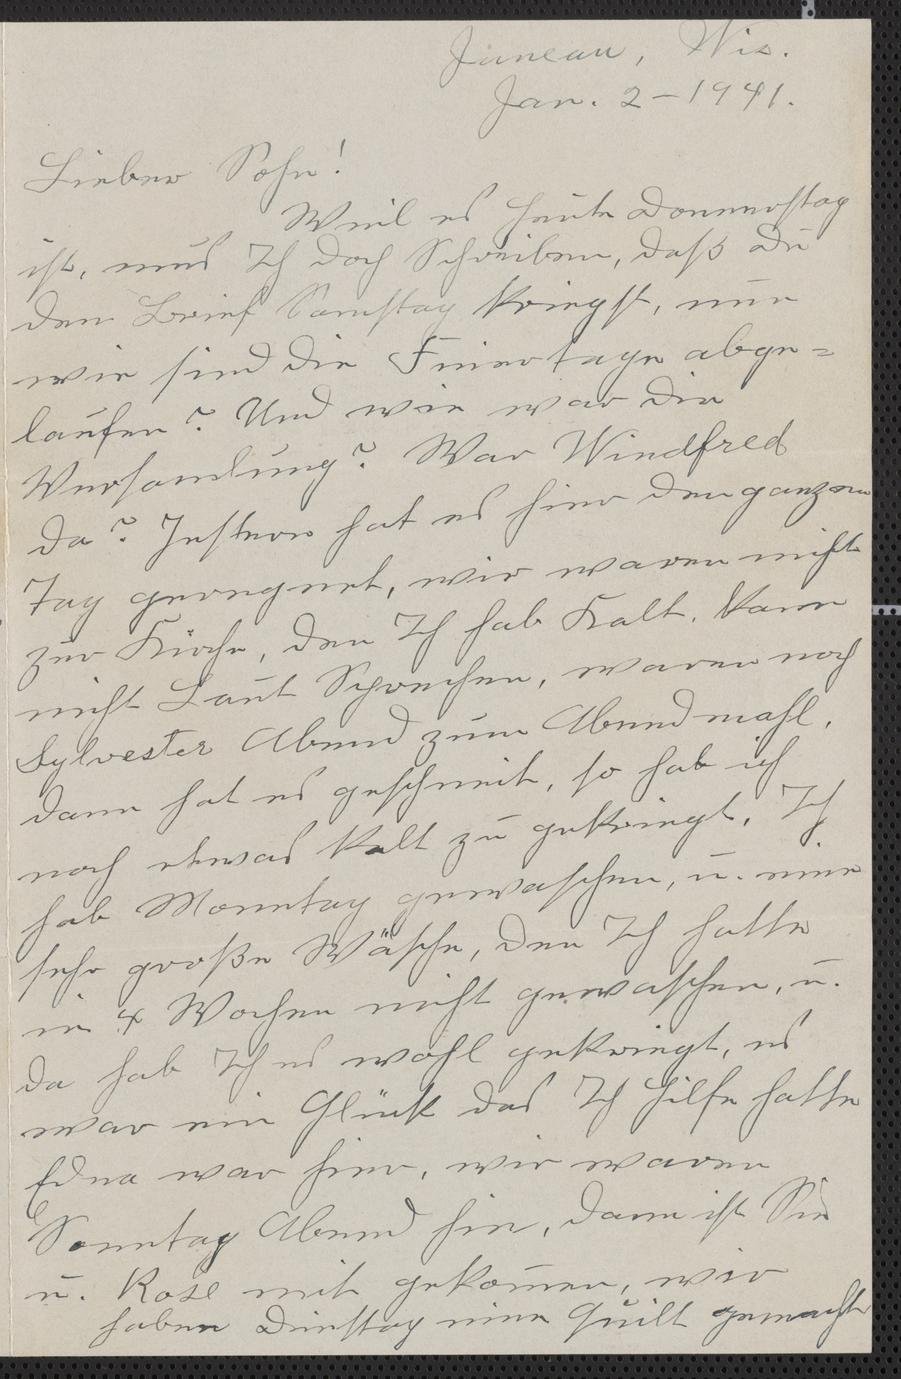 Juneau, Wis.
Jan. 2-1941.
Lieber Sohn!
Weil es heute Donnerstag
ist, mus Ich doch Schreiben, daß Du
den Brief Samstag kriegst, nun
wie sind die Feiertage abge=
laufen? Und wie war die
Versamlung? War Windfred
da? Jestern hat es hier den ganzen
Tag geregnet, wir waren nicht
zur Kirche, den Ich hab Kalt. kann
nicht Laut Sprechen, waren noch
Sylvester Abend zum Abendmahl,
dann hat es geschneit, so hab ich
noch etwas kalt zu gekriegt. Ich
hab Monntag gewaschen, u. eine
sehr große Wäsche, den Ich hatte
in 4 Wochen nicht gewaschen, u.
da hab Ich es wohl gekriegt, es
war ein Glück das Ich hilfe hatte
Edna war hier, wir waren
Sonntag Abend hin, dann ist Sie
u. Rose mit gekom̄en, wir
haben Dinstag einen Quilt gemacht